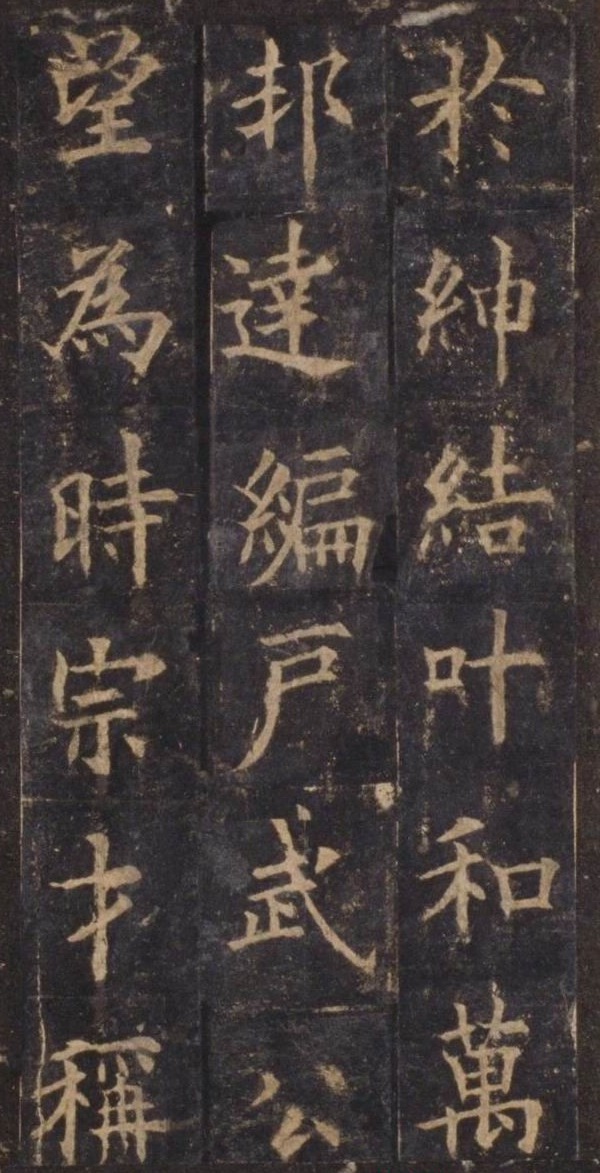 於紳結叶和萬
邦達編戶武公
望為時宗才稱